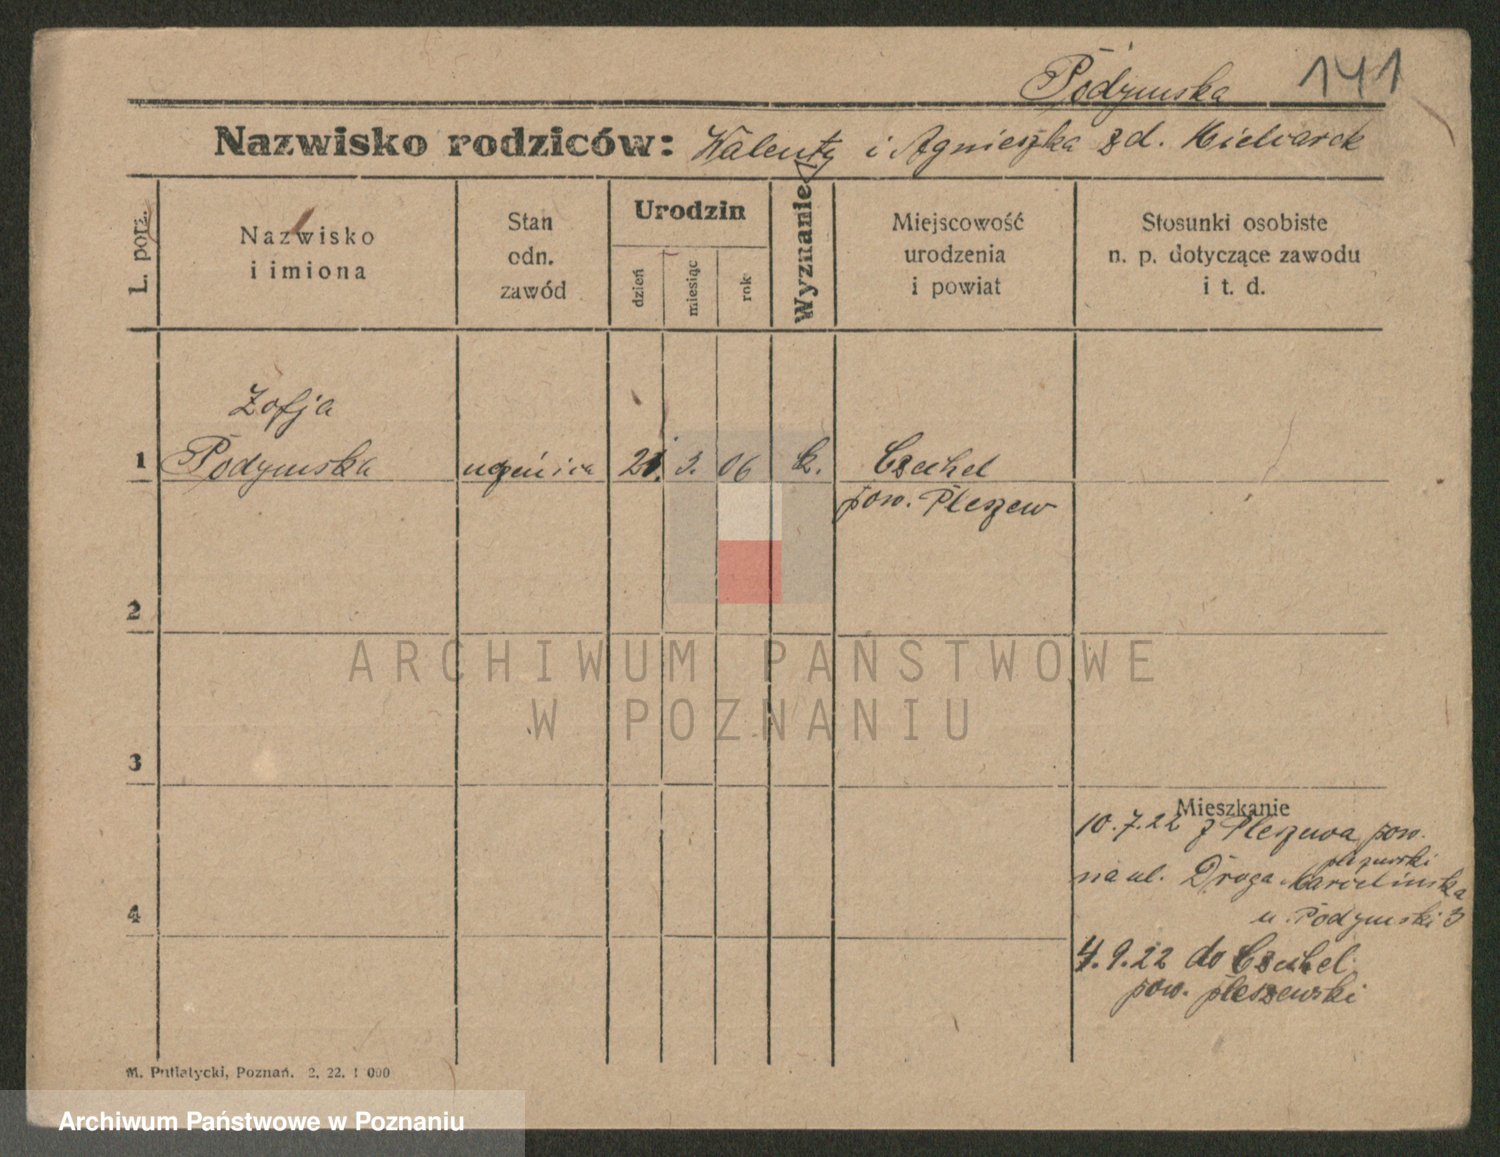 Podymska 141
Nazwisko rodziców: Walenty i Agnieszka zd. Kielvarek
L. porz.
Nazwisko
i imiona
Stan
odn.
zawód
Urodzin
dzień
miesiąc
rok
Wyznanie
Miejscowość
urodzenia
i powiat
Stosunki osobiste
n. p. dotyczące zawodu
i t. d.
Zofja
1 Podymska uczeńica 21. 3. 06 k. Czechel
pow. Pleszew
2
ARCHIWUM PAŃSTWOWE
W POZNANIU
3
Mieszkanie
10.7.22 z Pleszewa pow.
pleszewski
na ul. Droga Karolinska
4
u. Podymski 3
4.9.22 do Czechel
pow. pleszewski
M. Putiatycki, Poznań. 2. 22. 1 000
Archiwum Państwowe w Poznaniu